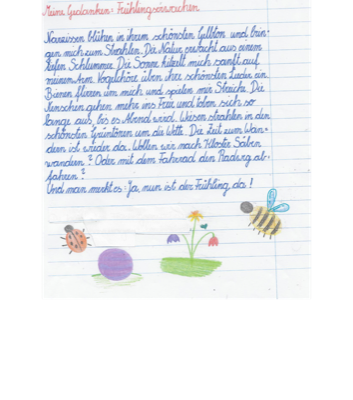 Meine Gedanken: Frühlingserwachen
Narzissen blühen in ihrem schönsten Gelbton und brin-
gen mich zum Strahlen. Die Natur erwacht aus einem
tiefen Schlummer. Die Sonne kitzelt mich sanft auf
meinem Arm. Vogelchöre üben ihre schönsten Lieder ein.
Bienen flirren um mich und spielen mir Streiche. Die
Menschen gehen mehr ins Freie und toben sich so
lange aus, bis es Abend wird. Wiesen strahlen in den
schönsten Grüntönen um die Wette. Die Zeit zum Wan-
dern ist wieder da. Wollen wir nach Kloster Säben
wandern? Oder mit dem Fahrrad den Radweg ab-
fahren?
Und man merkt es: Ja, nun ist der Frühling da!